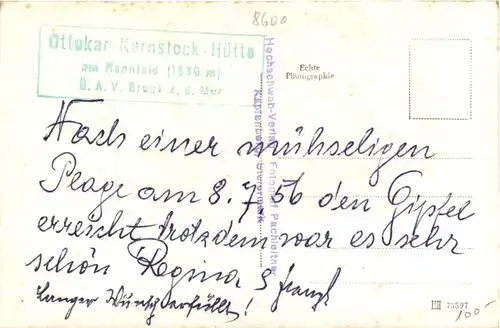 8600
Ottokar-Kernstock-Hütte
am Rennfeld (1630 m)
Ö. A. V. Bruck a. d. Mur
Echte
Photographie
Hochschwab-Verlag Fotograf Pachleitner
Kapfenberg Steiermark
Nach einer mühseligen
Plage am 8.7.56 den Gipfel
erreicht trotzdem war es sehr
schön Regina &
Langer Wunsch erfüllt!
73597
100-